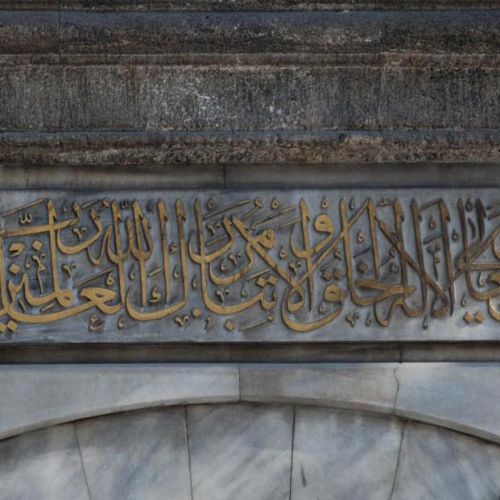 تعالى الا له الخلق والامر تبارك الله رب العالمين